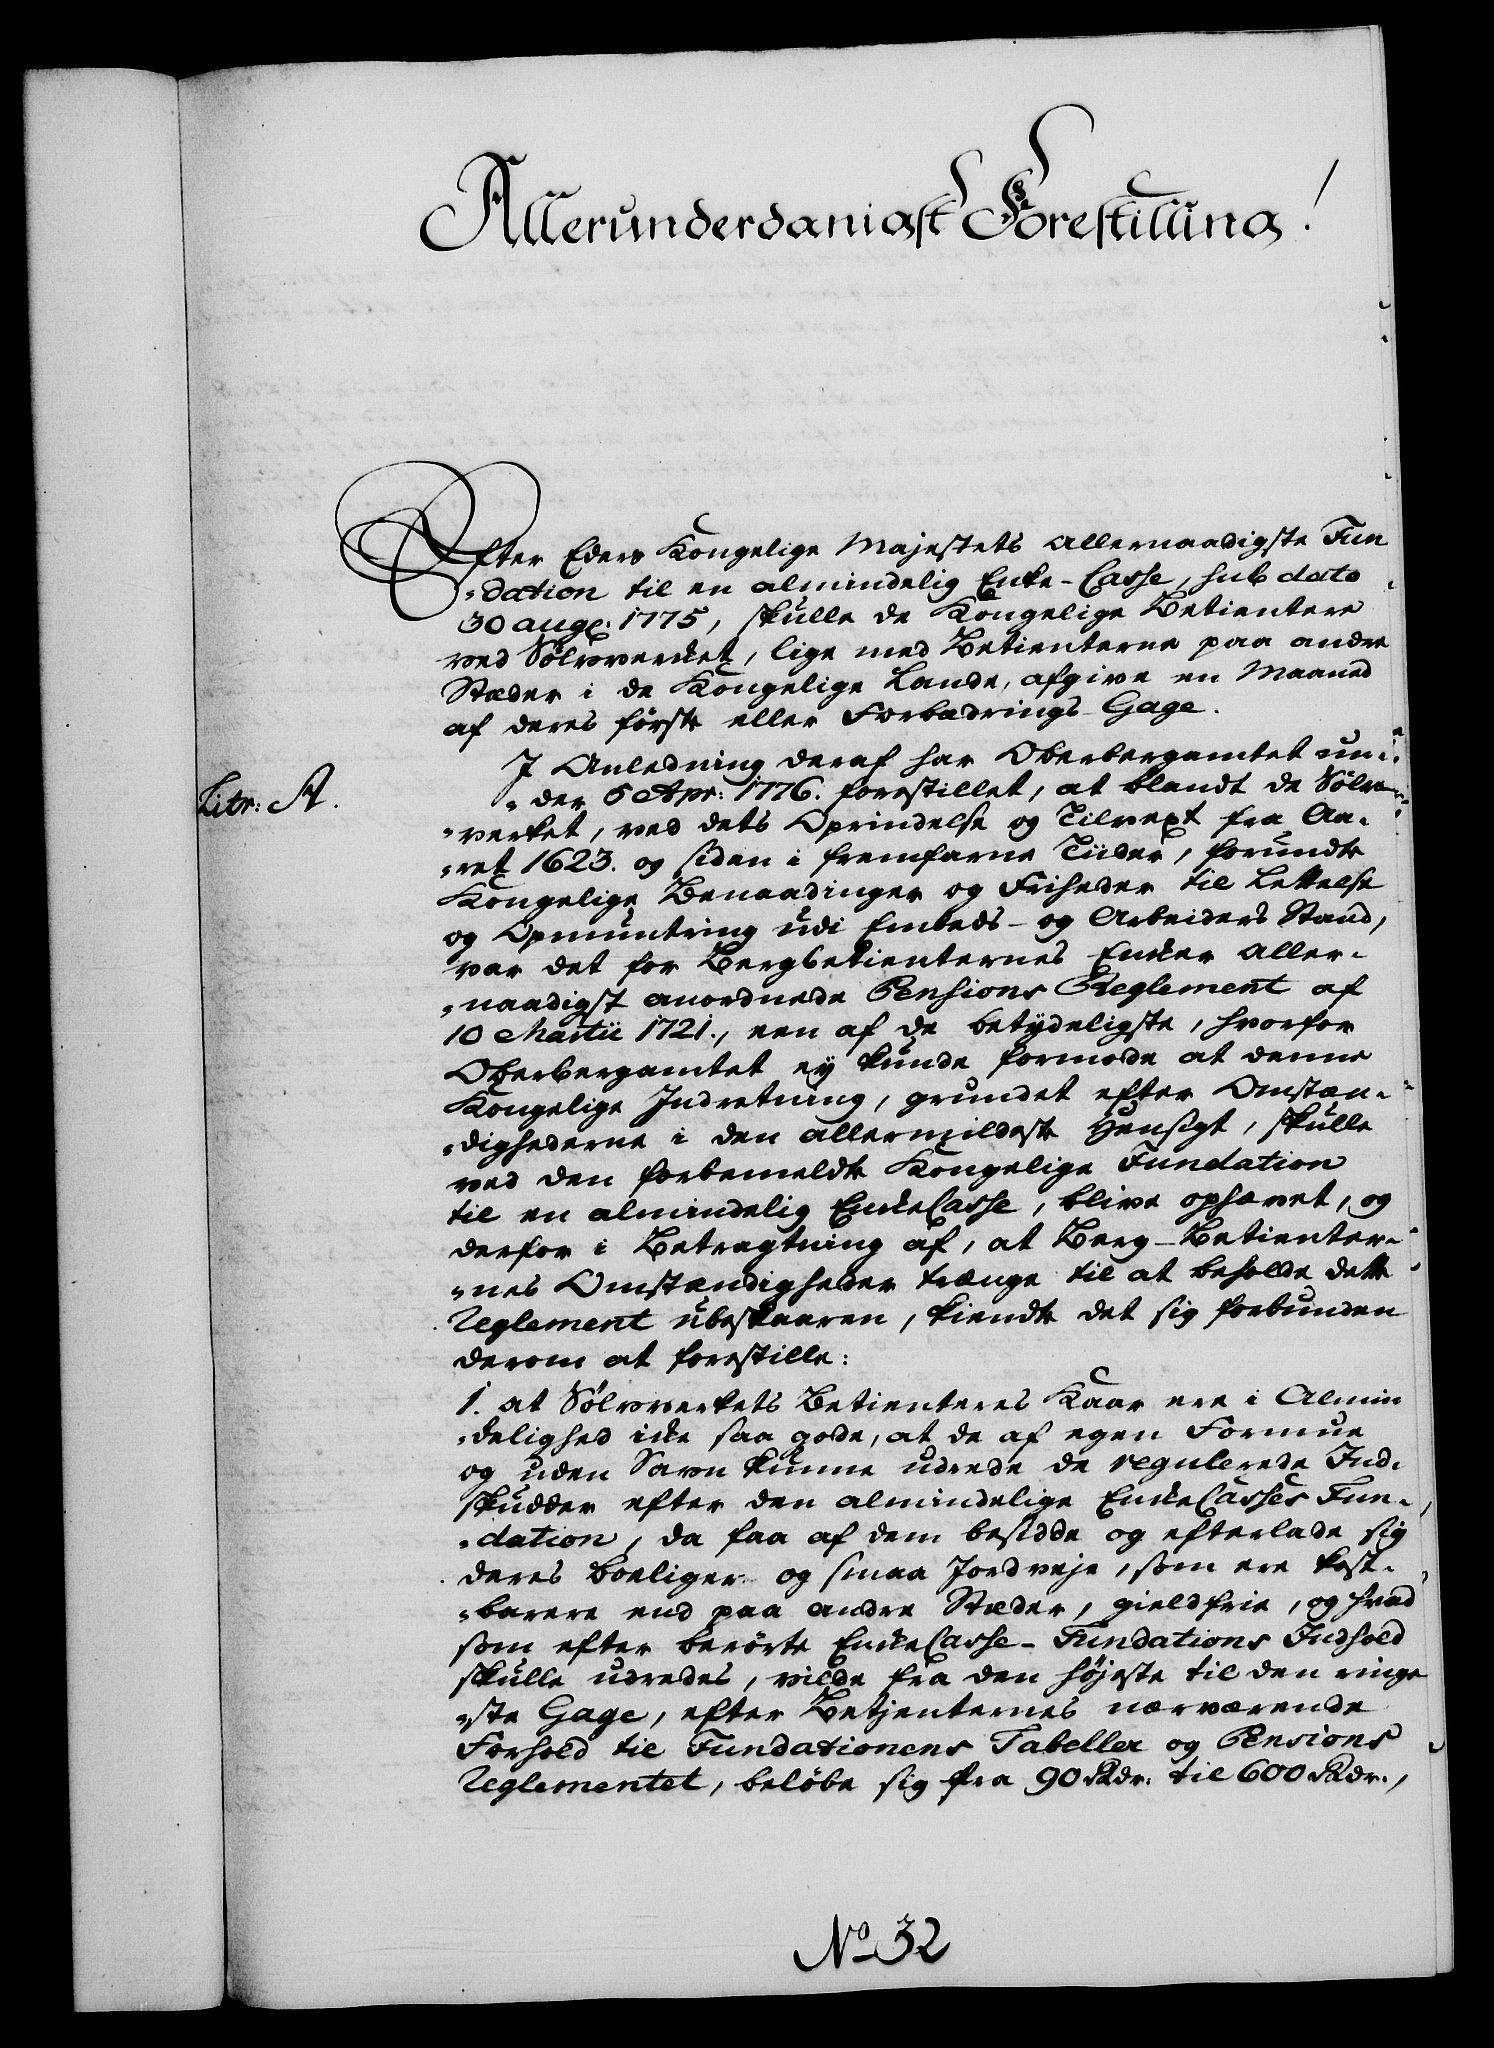 Allerunderdanigst Forestilling!
Efter Eders Kongelige Majestets allernaadigste Fun
-dation til en almindelig Enke-Casse, sub dato
30 aug: 1775, skulle de Kongelige Betientere
ved Sølvverket, lige med Betienterne paa andre
Stæder i de Kongelige Lande, afgive en Maaned
af deres første eller Forbædrings-Gage.
I Anledning deraf har Oberbergamtet un-
Litr: A.
-der 6 Apr: 1776. forestillet, at blandt de Sølv-
-verket, ved dets Oprindelse og Tilvext fra Aa-
-ret 1623. og siden i fremfarne Tiider, forundte
Kongelige Benaadinger og Friheder til Lettelse
og Opmuntring udi Embeds- og Arbeiders Stand,
var det for Bergbetienternes Enker aller-
-naadigst anordnede Pensions Reglement af
10 Martii 1721., een af de betydeligste, hvorfor
Oberbergamtet ey kunde formode at denne
Kongelige Indretning, grundet efter Omstæn-
-dighederne i den allermildeste Hensigt, skulle
ved den forbemeldte Kongelige Fundation
til en almindelig EnkeCasse, blive ophævet, og
derfor i Betragtning af, at Berg-Betienter-
-nes Omstændigheder trænge til at beholde dette
Reglement ubeskaaren, kiendte det sig forbunden
derom at forestille:
1. at Sølvverkets Betienteres Kaar ere i Almin
-delighed icke saa gode, at de af egen Formue
og uden Savn kunne udrede de regulerede Ind-
skudder efter den almindelige EnkeCasses Fun-
-dation, da faa af dem besidde og efterlade sig
deres boeliger og smaa Jordveje, som ere kost-
-barere end paa andre Stæder, gieldfrie, og hvad
som efter berørte EnkeCasse-Fundations Indhold
skulle udredes, vilde fra den højeste til den ringe
-ste Gage, efter Betjenternes nærværende
Forhold til Fundationens Tabeller og Pensions
Reglementet, beløbe sig fra 90 Rdr: til 600 Rdr.,
No 32